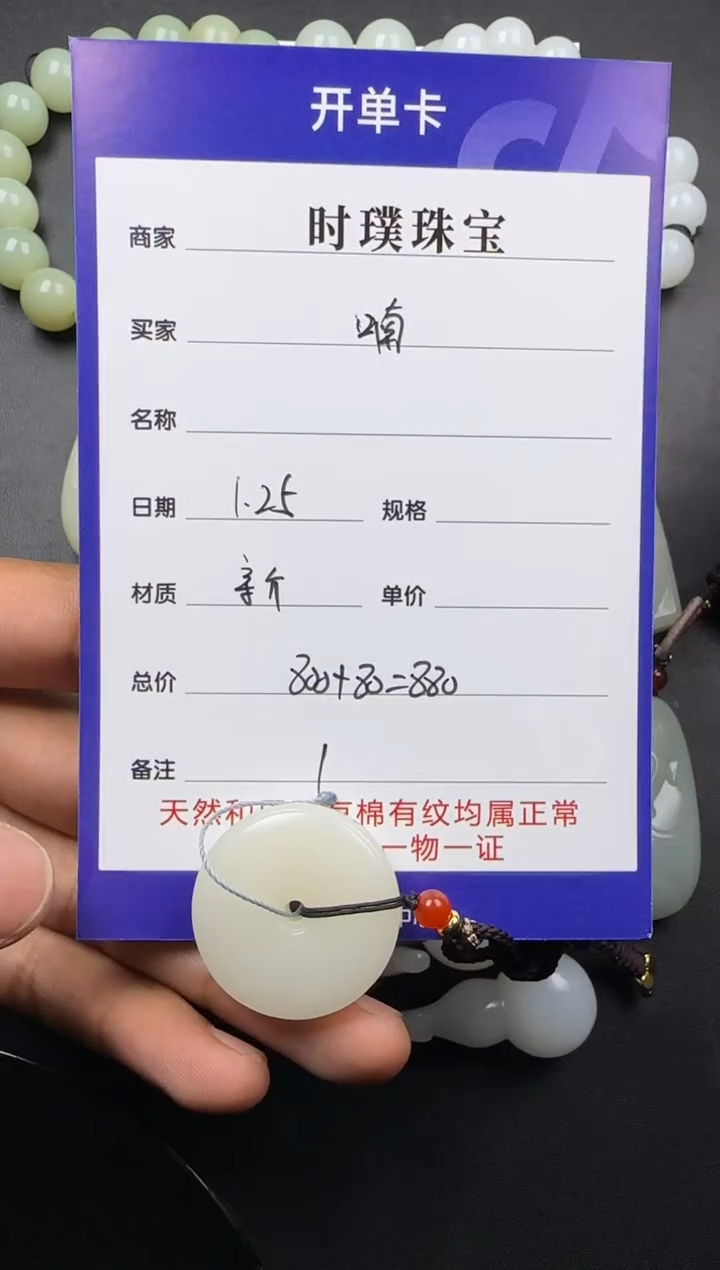 开单卡
商家 时璞珠宝
买家 喃
名称
日期 1.25 规格
材质 单价
总价 800+80=880
备注 1
天然和 棉有纹均属正常
一物一证